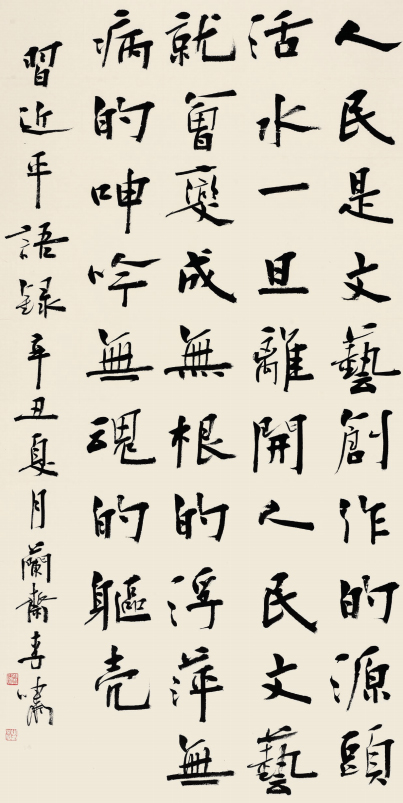 人民是文藝創作的源頭
活水一旦離開人民文藝
就會變成無根的浮萍無
病的呻吟無魂的軀壳
習近平語録辛丑夏月蘭齋李嘯